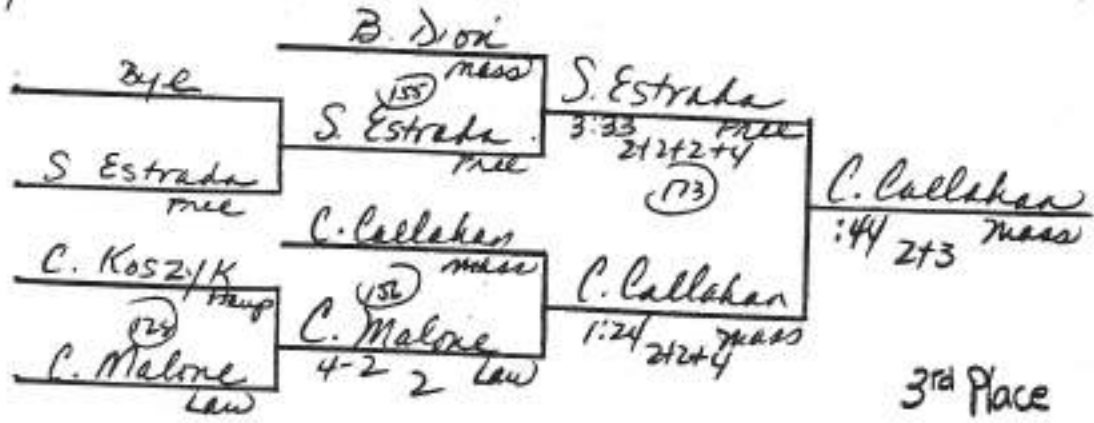 Bye
S Estrada
Free
C. Koszyk
Haup
128
C. Malone
Law
B. Dion
Mass
155
S. Estrada
Free
C. Callahan
Mass
156
C. Malone
4-2 2 Law
S. Estrada
3:33 Free
2+2+2+4
173
C. Callahan
1:24 Mass
2+2+4
C. Callahan
:44 2+3 Mass
3rd Place